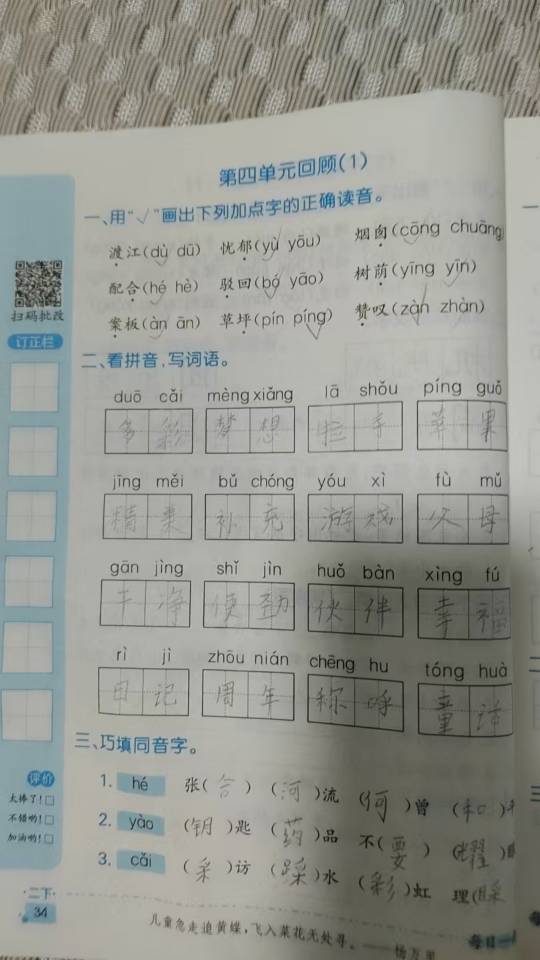 第四单元回顾(1)
一、用“√”画出下列加点字的正确读音。
渡江(dù dū) 忧郁(yù yōu) 烟囱(cōng chuāng
配合(hé hè) 驳回(bó yāo) 树荫(yīng yīn)
案板(àn ān) 草坪(pín píng) 赞叹(zàn zhàn)
扫码批改
订正栏
二、看拼音,写词语。
duō cǎi mèng xiǎng lā shǒu píng guǒ
多 彩 梦 想 拉 手 苹 果
jīng měi bǔ chōng yóu xì fù mǔ
精 美 补 充 游 戏 父 母
gān jìng shǐ jìn huǒ bàn xìng fú
干 净 使 劲 伙 伴 幸 福
rì jì zhōu nián chēng hu tóng huà
日 记 周 年 称 呼 童 话
三、巧填同音字。
1. hé 张(合) (河)流 (何)曾 (和)
2. yào (钥)匙 (药)品 不(要) (耀)
3. cǎi (采)访 (踩)水 (彩)虹 理(睬
评价
太棒了!□
不错哟!□
加油哟!□
·二下·
34
儿童急走追黄蝶,飞入菜花无处寻。——杨万里
每日一